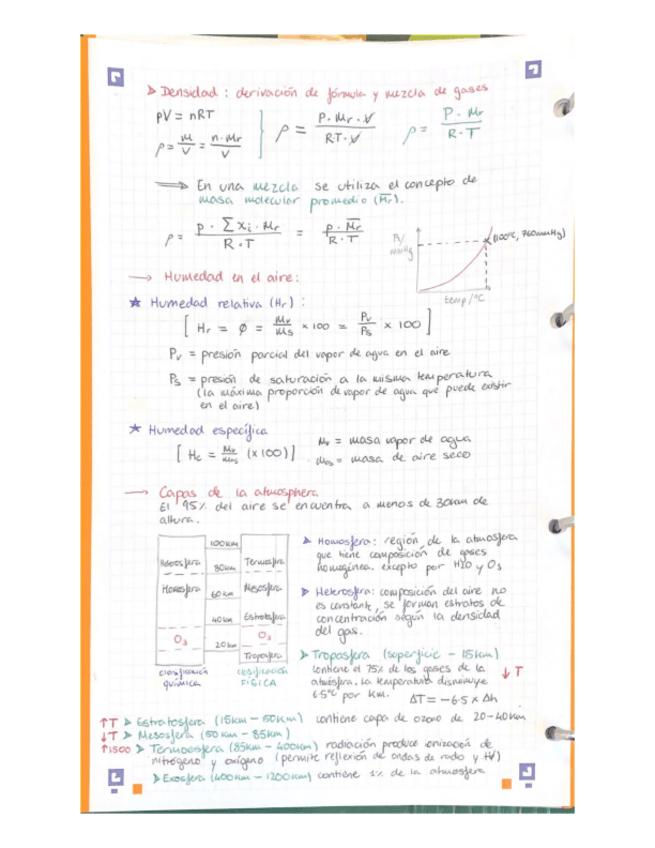 > Densidad: derivación de fórmula y mezcla de gases
pV = nRT
ρ = m/V = n·Mr/V
ρ = P·Mr·V/RT·V
ρ = P·Mr/R·T
⟹ En una mezcla se utiliza el concepto de
masa molecular promedio (M̅r̅).
ρ = p·∑xi·Mr/R·T = p·M̅r̅/R·T
P/mmHg
(100ºC, 760mmHg)
temp/ºC
→ Humedad en el aire:
★ Humedad relativa (Hr):
[Hr = ø = Mv/Ms × 100 = Pv/Ps × 100]
Pv = presión parcial del vapor de agua en el aire
Ps = presión de saturación a la misma temperatura
(la máxima proporción de vapor de agua que puede existir
en el aire)
★ Humedad específica
[He = Mv/mas (×100)]
Mv = masa vapor de agua
mas = masa de aire seco
→ Capas de la atmosphera
El 95% del aire se encuentra a menos de 30km de
altura.
100km
Heterosfera
80km
Termosfera
Homosfera
60km
Mesosfera
40km
Estratosfera
O3
20km
O3
Troposfera
clasificación
química
clasificación
FÍSICA
> Homosfera: región de la atmosfera
que tiene composición de gases
homogénea. excepto por H2O y O3
> Heterosfera: composición del aire no
es constante, se forman estratos de
concentración según la densidad
del gas.
> Troposfera (superficie - 15km)
contiene el 75% de los gases de la
atmósfera. La temperatura disminuye
6.5ºC por km.
↓T
ΔT = -6.5 × Δh
↑T > Estratosfera (15km - 50km) contiene capa de ozono de 20-40km
↓T > Mesosfera (50km - 85km)
↑1500 > Termosfera (85km - 400km) radiación produce ionización de
nitrógeno y oxígeno (permite reflexión de ondas de radio y TV)
> Exosfera (400km - 1200km) contiene 1% de la atmosfera